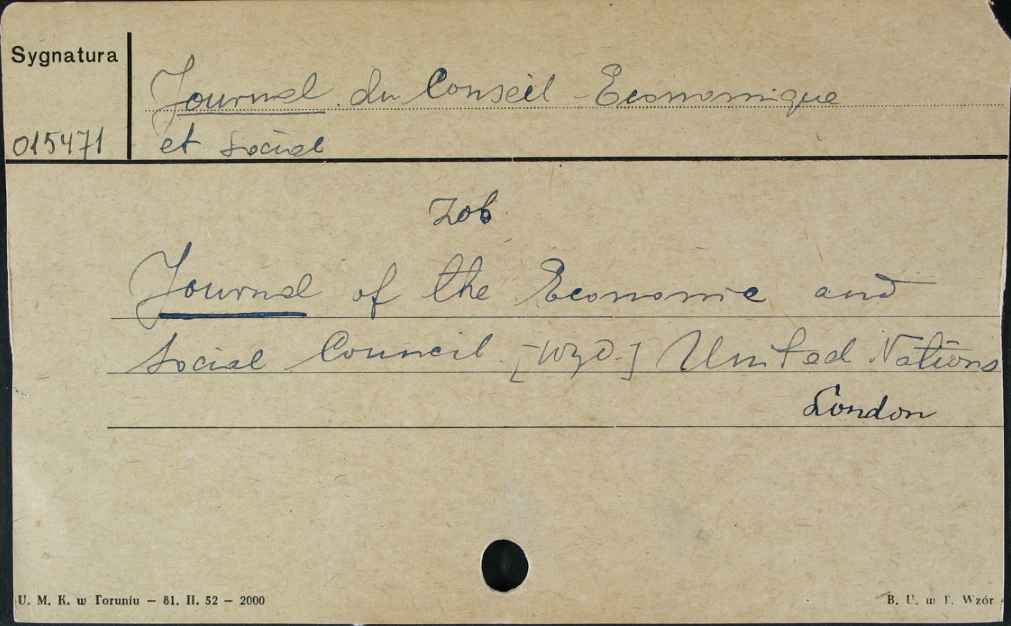 Sygnatura
Journal du Conseil Economique
015471
et Social
Zob
Journal of the Economic and
Social Council [Wyd.] United Nations
London
U. M. K. w Toruniu — 81. II. 52 — 2000
B. U. w T. Wzór